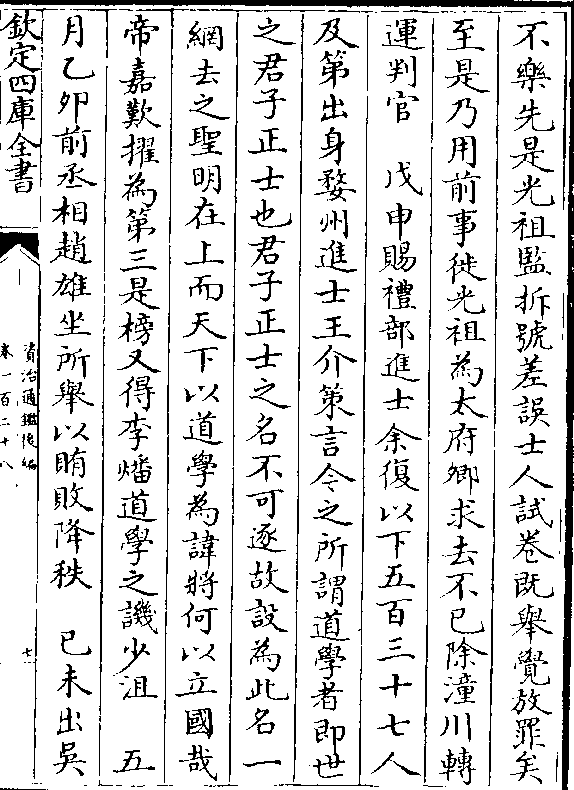 不樂先是光祖監拆號差誤士人試卷既舉覺放罪矣
至是乃用前事徙光祖為太府卿求去不已除潼川轉
運判官　戊申賜禮部進士余復以下五百三十七人
及第出身婺州進士王介策言今之所謂道學者即世
之君子正士也君子正士之名不可逐故設為此名一
網去之聖明在上而天下以道學為諱將何以立國哉
帝嘉歎擢為第三是榜又得李燔道學之譏少沮　五
月乙卯前丞相趙雄坐所舉以賄敗降秩　己未出吳
欽定四庫全書
資治通鑑後編
卷一百二十八
十一